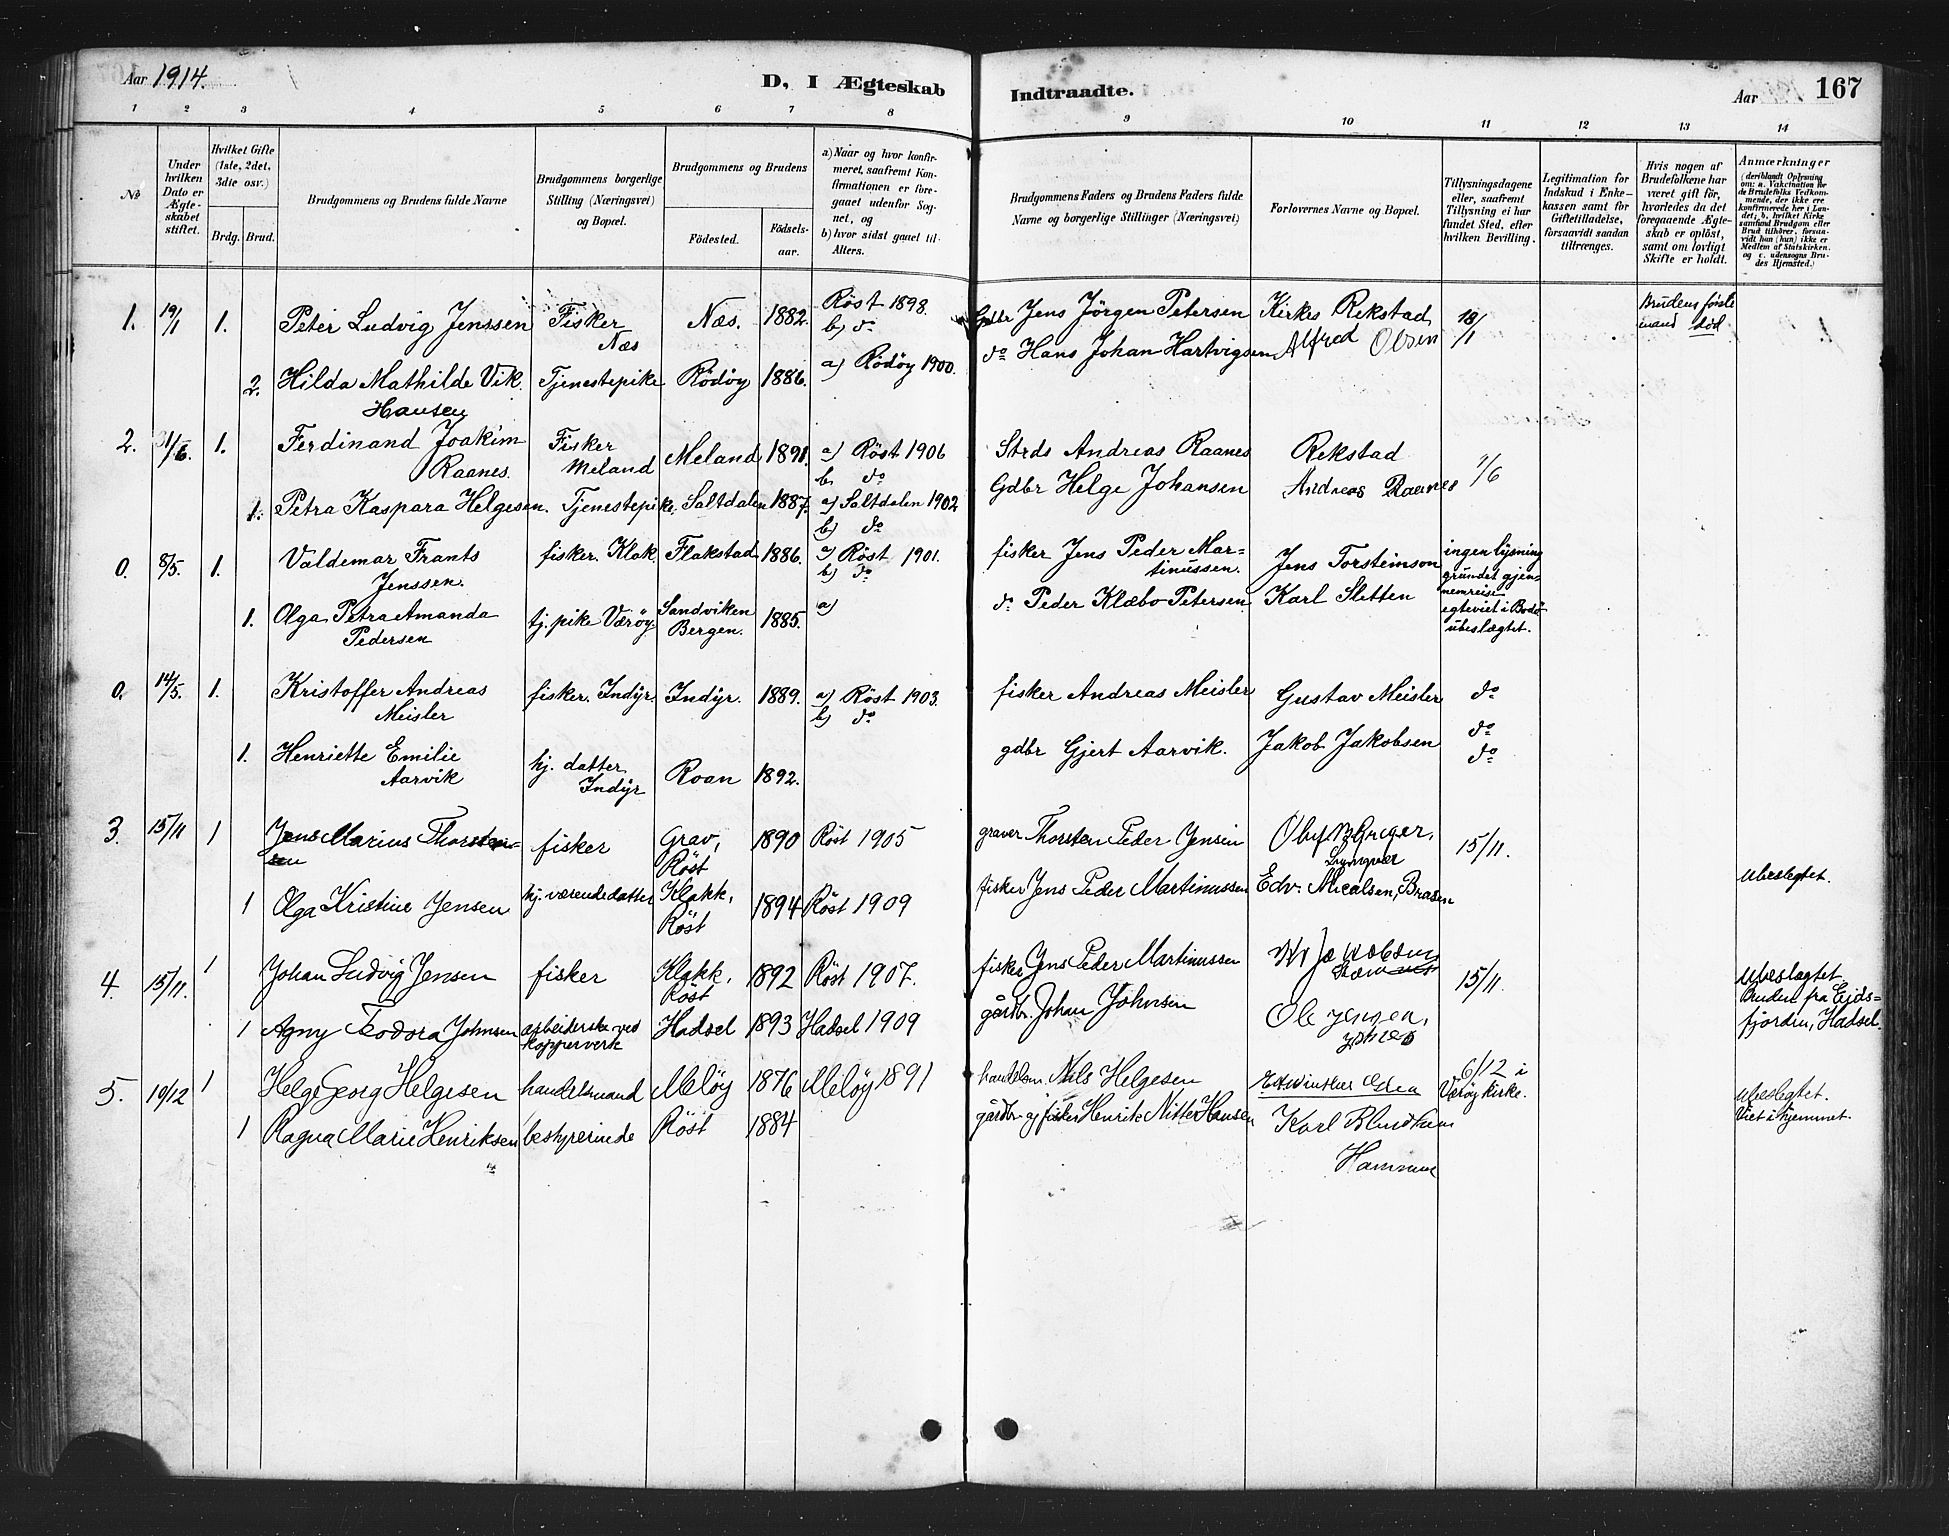 Aar 1914.
D, I Ægteskab Indtraadte.
Aar 167
1 2 3 4 5 6 7 8 9 10 11 12 13 14
No
Under hvilken Dato er Ægteskabet stiftet.
Hvilket Gifte (1ste, 2det, 3die osv.)
Brdg. Brud.
Brudgommens og Brudens fulde Navne
Brudgommens borgerlige Stilling (Næringsvei) og Bopæl.
Brudgommens og Brudens
Födested.
Födselsaar.
a) Naar og hvor konfirmeret, saafremt Konfirmationen er foregaaet udenfor Sognet, og
b) hvor sidst gaaet til Alters.
Brudgommens Faders og Brudens Faders fulde Navne og borgerlige Stillinger (Næringsvei)
Forlovernes Navne og Bopæl.
Tillysningsdagene eller, saafremt Tillysning ei har fundet Sted, efter hvilken Bevilling.
Legitimation for Indskud i Enkekassen samt för Giftetilladelse, forsaavidt saadan tiltrænges.
Hvis nogen af Brudefolkene har været gift för, hvorledes da det foregaaende Ægteskab er oplöst, samt om lovligt Skifte er holdt.
Anmærkninger
(deriblandt Oplysning om: a. Vakcination for de Brudefolks Vedkommende, der ikke ere konfirmerede her i Landet; b. hvilket Kirkesamfund Brudgom eller Brud tilhörer, forsaavidt han (hun) ikke er Medlem af Statskirken, og c. udensogns Brudes Hjemsted.)
1. 19/1 1. Peter Ludvig Jenssen Fisker Næs Næs. 1882. Röst 1898. b) do Gdbr Jens Jörgen Petersen Kirkes. Rekstad 18/1 Brudens förste mand död
2. Hilda Mathilde Vik Hansen Tjenestepike Rödöy 1886. a) Rödöy 1900. do Hans Johan Hartvigsen Alfred Olsen
2. 1/6. 1. Ferdinand Joakim Raanes. Fisker Meland Meland 1891. a) Röst 1906 b. do Strds Andreas Raanes Rekstad 1/6
1. Petra Kaspara Helgesen. Tjenestepike. Saltdalen 1887. a) Saltdalen 1902 b) do Gdbr Helge Johansen Andreas Raanes
0. 8/5. 1. Valdemar Frants Jenssen. fisker. Klak. Flakstad 1886. a) Röst 1901. b) do fisker Jens Peder Martinussen. Jens Torsteinson ingen lysning grundet gjennemreise
1. Olga Petra Amanda Pedersen tj. pike Værøy. Sandviken Bergen. 1885. a) do Peder Klæbo Petersen Karl Sletten egteviet i Bodö ubeslægtet.
0. 14/5. 1. Kristoffer Andreas Meisler fisker. Indyr. Indyr. 1889. a) Röst 1903. b) do fisker Andreas Meisler Gustav Meisler do
1. Henriette Emilie Aarvik hj. datter Indyr Roan 1892. gdbr Gjert Aarvik. Jakob Jakobsen do do
3. 15/11 1 Jens Marius Thorstensen fisker Grav, Röst 1890 Röst 1905 graver Thorsten Peder Jensen 15/11.
1 Olga Kristine Jensen hj. værende datter Klakk, Röst 1894 Röst 1909 fisker Jens Peder Martinussen Edv. Micalsen, Brasen ubeslegtet.
4. 15/11. 1 Johan Ludvig Jensen fisker Klakk, Röst 1892 Röst 1907. fisker Jens Peder Martinussen 15/11. ubeslagtet
1 Agny Teodora Johnsen arbeiderske ved kopperverk Hadsel 1893 Hadsel 1909 gårdbr. Johan Johnsen Ole Jensen, Bruden fra Eidsfjorden, Hadsel.
5. 10/12 1 Helge Georg Helgesen handelsmand Meløy 1876 Meløy 1891 handelsm. Nils Helgesen 6/12 i Værøy kirke. ubeslegtet.
1 Ragna Marie Henriksen bestyrerinde Röst 1884 gårdbr og fisker Henrik Nitter Hansen Karl Viet i hjemmet.